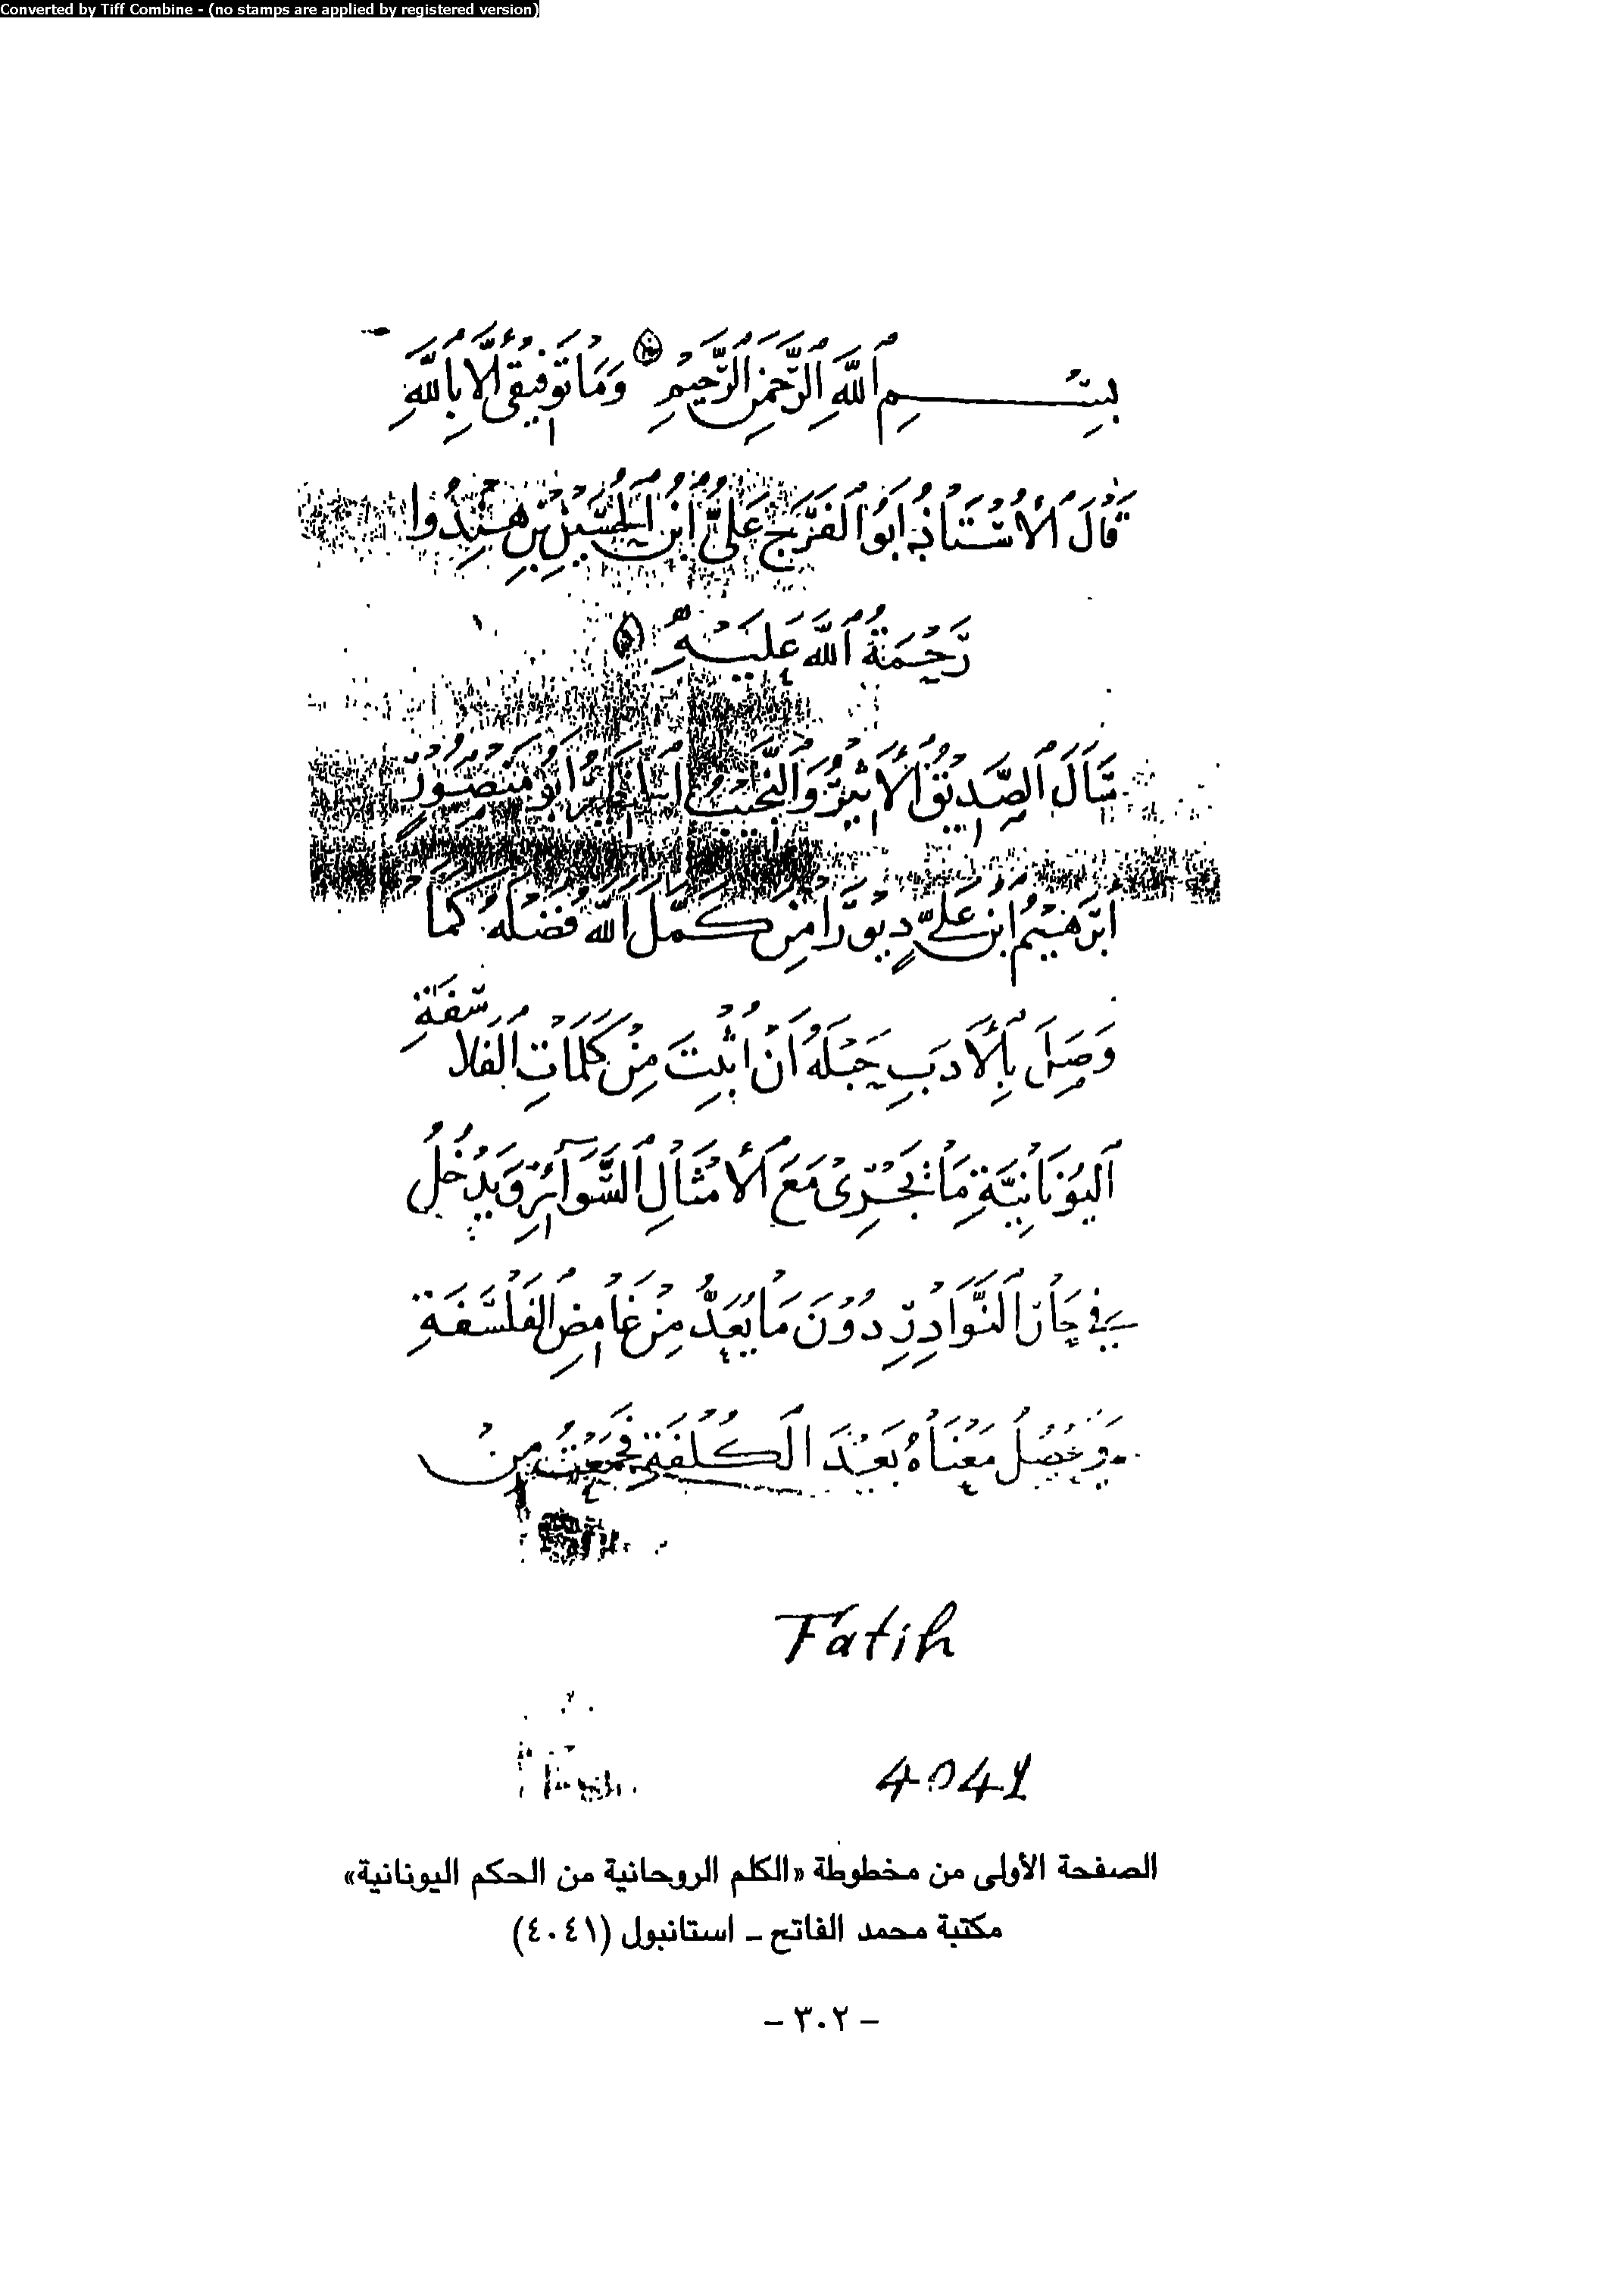 Converted by Tiff Combine - (no stamps are applied by registered version)
بِسْمِ اللَّهِ الرَّحْمَنِ الرَّحِيمِ وَمَا تَوْفِيقِي إِلَّا بِاللَّهِ
قَالَ الْأُسْتَاذُ أَبُو الْفَرَجِ عَلِيُّ ابْنُ الْحُسَيْنِ بْنِ هِنْدُوا
رَحْمَةُ اللَّهِ عَلَيْهِ
سَأَلَ الصَّدِيقُ الْأَثِيرُ وَالنَّجِيبُ أَبُو مَنْصُورٍ
إِبْرَهِيمُ ابْنُ عَلِيٍّ دِيوَرَا مِنْ كَمَّلَ اللَّهُ فَضْلَهُ كَمَا
وَصَلَ بِالْأَدَبِ حَبْلَهُ أَنْ أُثْبِتَ مِنْ كَلِمَاتِ الْفَلَاسِفَةِ
الْيُونَانِيَّةِ مَا يَجْرِي مَعَ الْأَمْثَالِ السَّوَائِرِ وَيَدْخُلُ
فِي جَارِ النَّوَادِرِ دُونَ مَا يُعَدُّ مِنْ غَامِضِ الْفَلْسَفَةِ
وَيَحْصُلُ مَعْنَاهُ بَعْدَ الْكُلْفَةِ فَجَمَعْتُ مِنْ
Fatih
4041
الصفحة الأولى من مخطوطة «الكلم الروحانية من الحكم اليونانية»
مكتبة محمد الفاتح – استانبول (٤٠٤١)
– ٣٠٢ –